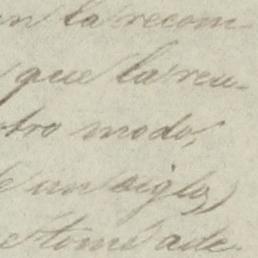 en la recom-
que la reu-
otro modo,
de un siglo,)
e tomé ade-